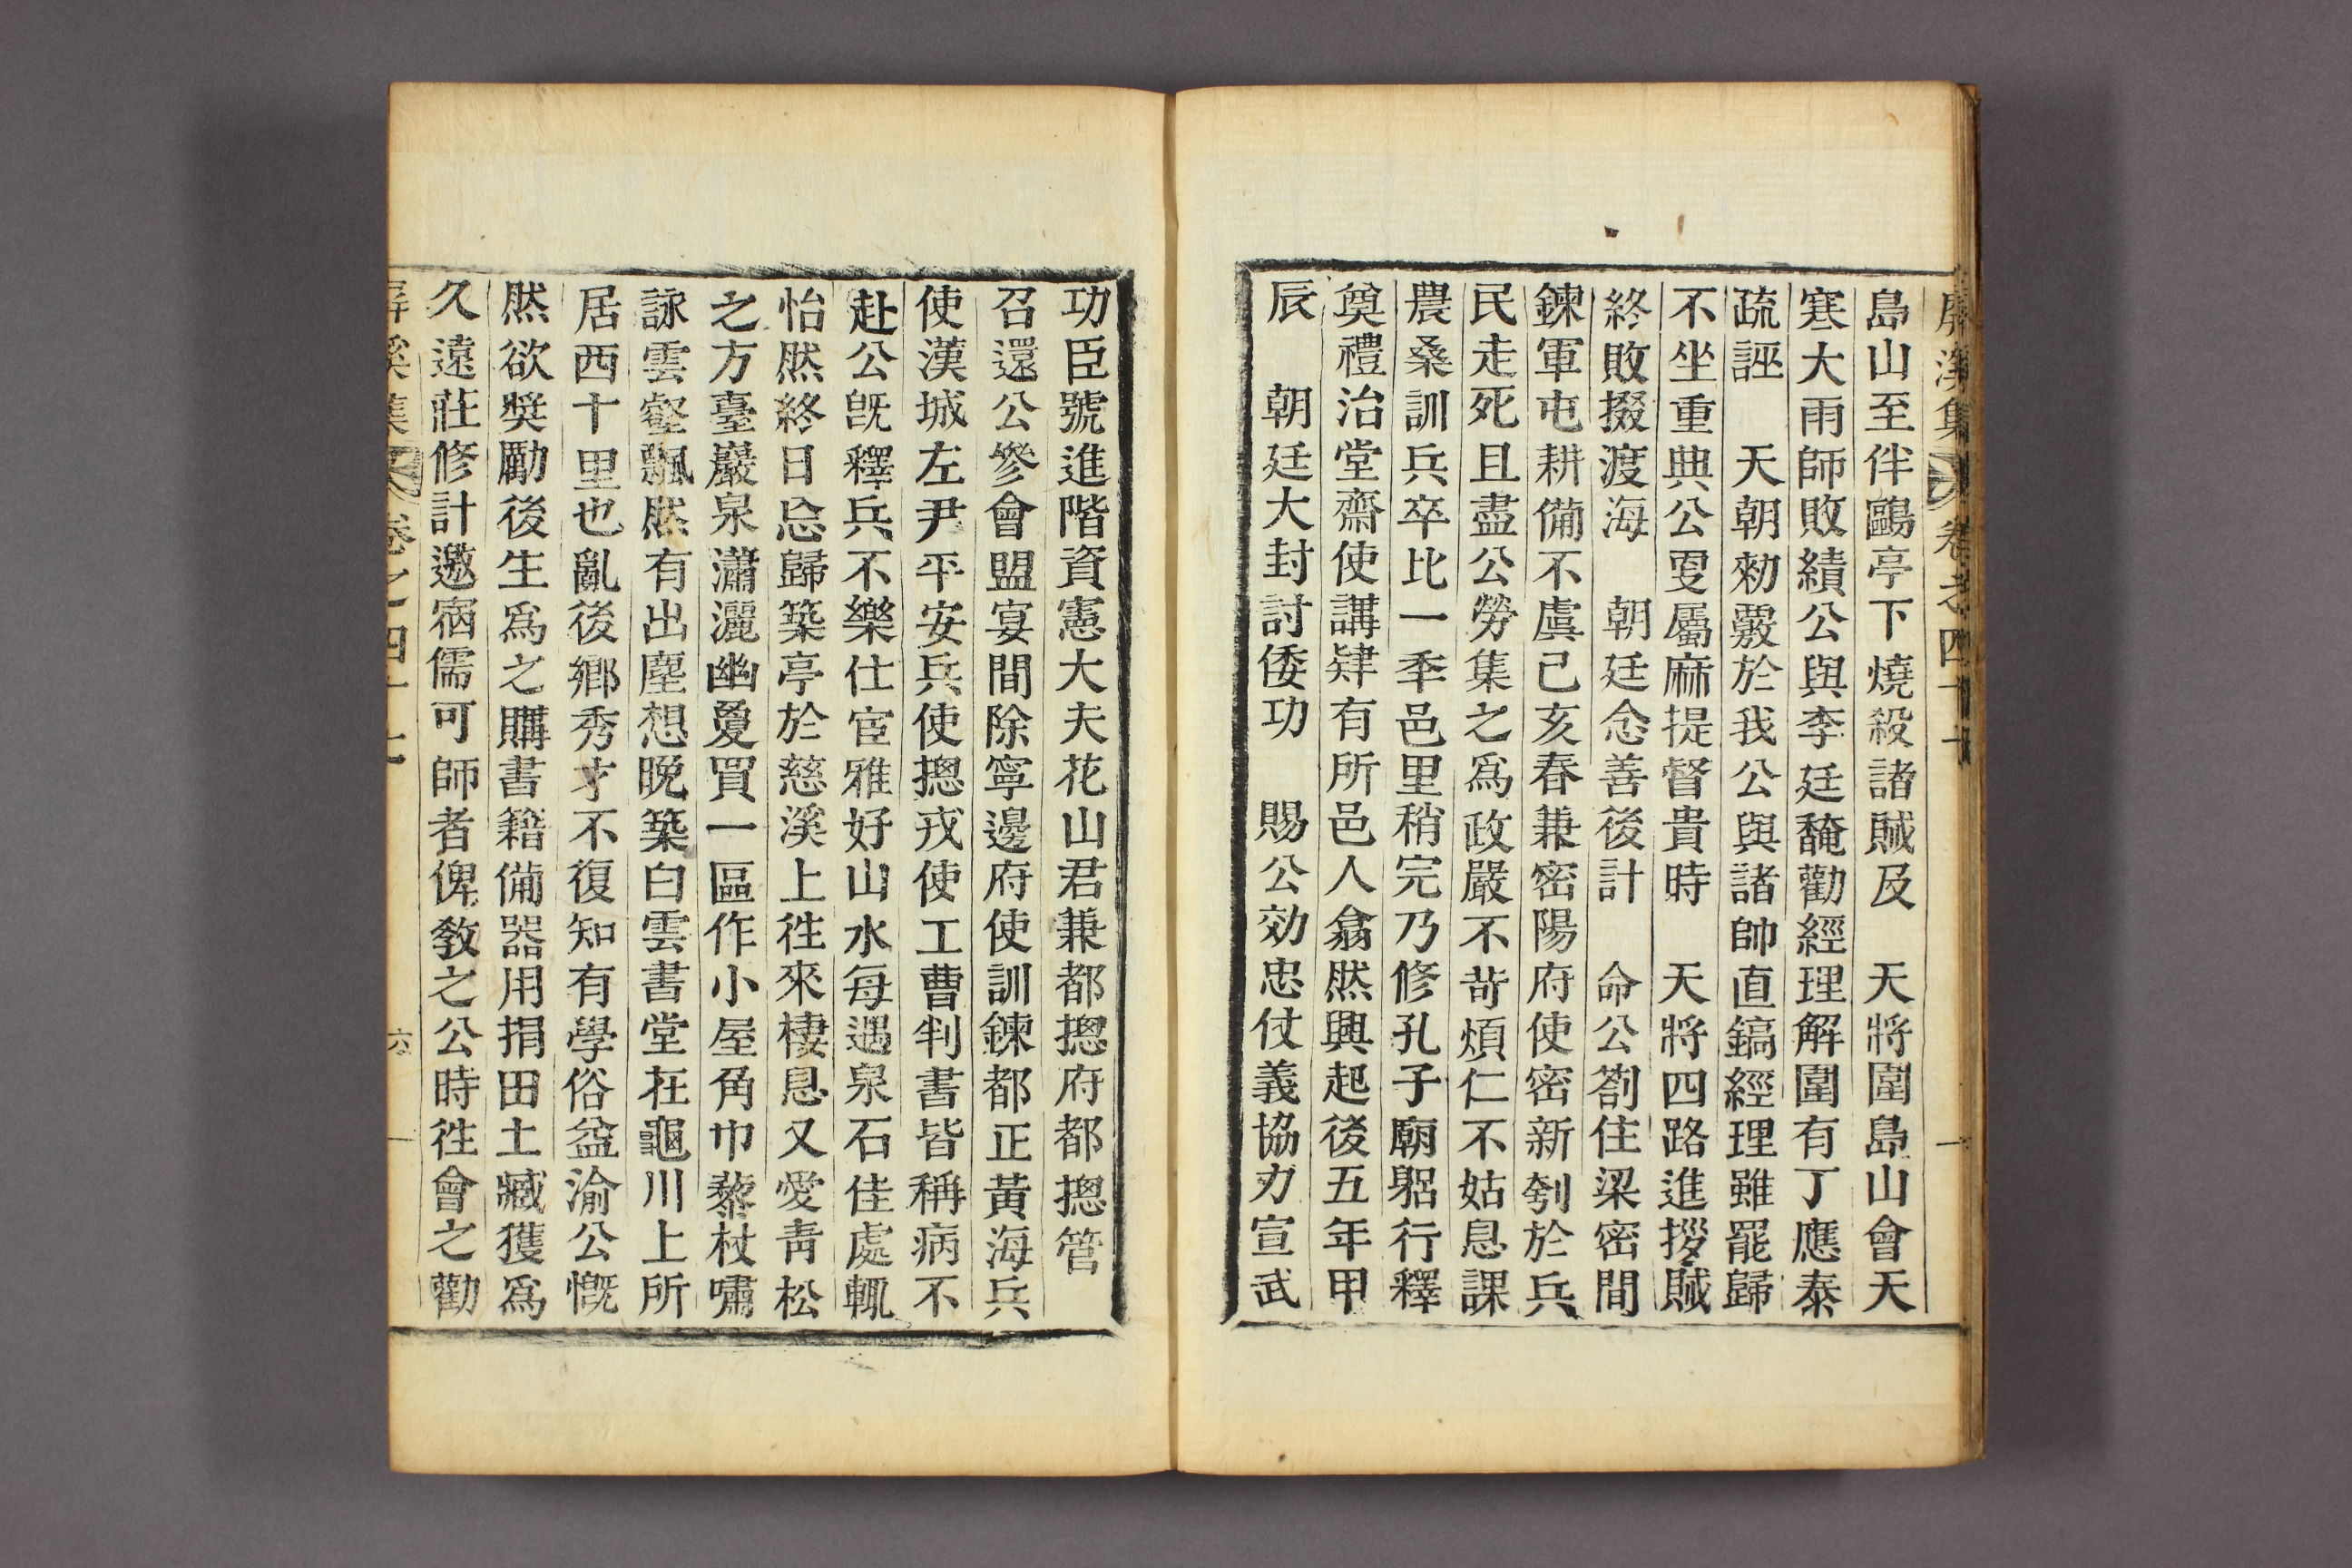 屏溪集 卷之四十七
島山至伴鷗亭下燒殺諸賊及 天將圍島山會天
寒大雨師敗績公與李廷馣勸經理解圍有丁應泰
疏誣 天朝勑覈於我公與諸帥直鎬經理雖罷歸
不坐重典公更屬麻提督貴時 天將四路進拶賊
終敗掇渡海 朝廷念善後計 命公劄住梁密間
鍊軍屯耕備不虞己亥春兼密陽府使密新刳於兵
民走死且盡公勞集之爲政嚴不苛煩仁不姑息課
農桑訓兵卒比一秊邑里稍完乃修孔子廟躳行釋
奠禮治堂齋使講肄有所邑人翕然興起後五年甲
辰 朝廷大封討倭功 賜公効忠仗義協力宣武
功臣號進階資憲大夫花山君兼都摠府都摠管
召還公叅會盟宴間除寧邊府使訓鍊都正黃海兵
使漢城左尹平安兵使摠戎使工曹判書皆稱病不
赴公旣釋兵不樂仕宦雅好山水每遇泉石佳處輒
怡然終日忘歸築亭於慈溪上徃來棲息又愛靑松
之方臺巖泉瀟灑幽夐買一區作小屋角巾藜杖嘯
詠雲壑飄然有出塵想晩築白雲書堂在龜川上所
居西十里也亂後鄕秀才不復知有學俗益渝公慨
然欲奬勵後生爲之購書籍備器用捐田土臧獲爲
久遠莊修計邀宿儒可師者俾敎之公時徃會之勸
屏溪集 卷之四十七 六